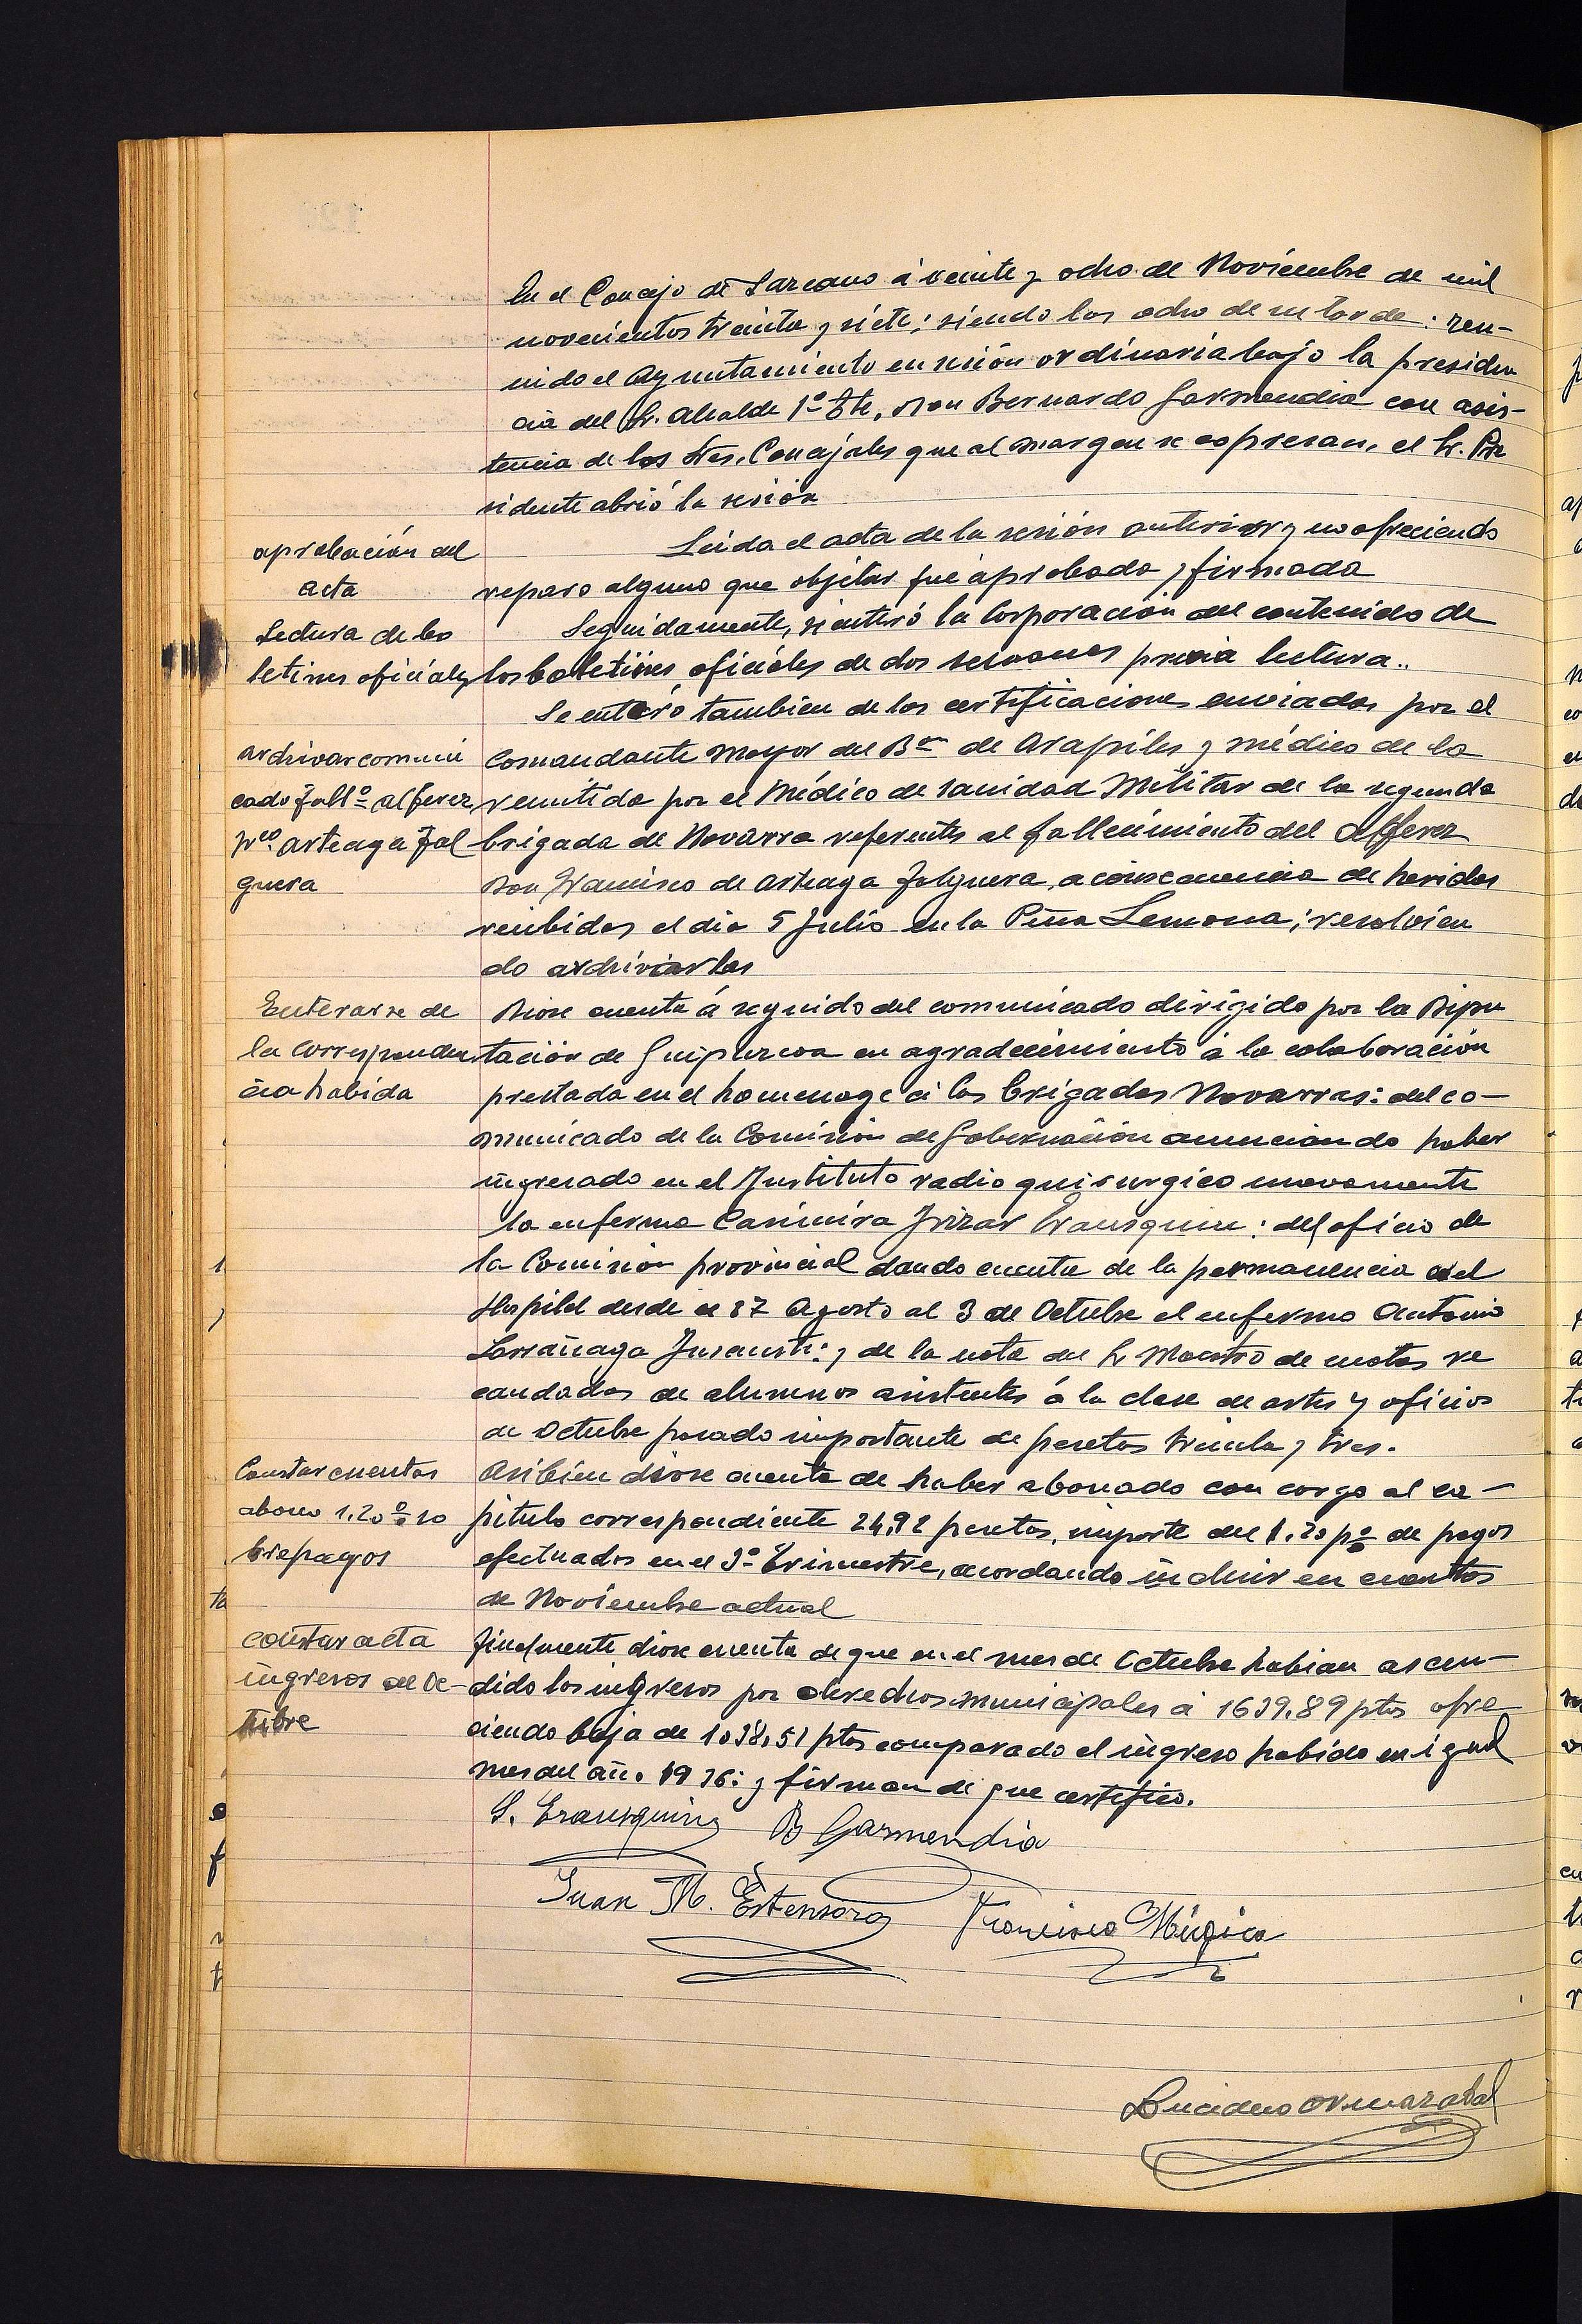 En el Concejo de Lazcano á veinte y ocho de Noviembre de mil
novecientos treinta y siete; siendo las ocho de su tarde: reu-
nido el Ayuntamiento en sesión ordinaria bajo la presiden
cia del Sr. Alcalde 1º Tte, Don Bernardo Garmendia con asis-
tencia de los Sres. Concejales que al margen se expresan, el Sr. Pre
sidente abrió la sesión
aprobación del
acta
Leida el acta de la sesión anterior y no ofreciendo
reparo alguno que objetar fué aprobada y firmada
Lectura de bo
letines oficiales
Seguidamente, se enteró la Corporación del contenido de
los boletines oficiales de dos semanas previa lectura..
archivar comuni
cado fallº alferez
Frco Arteaga Fal
guera
Se enteró tambien de las certificaciones enviadas por el
Comandante Mayor del Bon de Arapiles y médico de la
remitida por el Médico de Sanidad Militar de la segunda
brigada de Navarra referentes al fallecimiento del Alferez
Don Francisco de Arteaga Falguera, a consecuencia de heridas
recibidas el dia 5 Julio en la Peña Lemona; resolvien
do archivarlas
Enterarse de
la correspenden
cia habida
Diose cuenta á seguido del comunicado dirigido por la Dipu
tación de Guipuzcoa en agradecimiento á la colaboración
prestada en el homenage á las brigadas Navarras: del co-
municado de la Comisión de Gobernación anunciando haber
ingresado en el Instituto radio quirurgico nuevamente
la enferma Casimira Irizar Erausquin: del oficio de
la Comisión provincial dando cuenta de la permanencia del
Hospital desde el 27 Agosto al 3 de Octubre el enfermo Antonio
Larrañaga Insausti: y de la nota del Sr Maestro de cuotas re
caudadas de alumnos asistentes á la clase de artes y oficios
de Octubre pasado importante de pesetas treinta y tres.
Constar cuentas
abono 1,20 % so
bre pagos
Asibien diose cuenta de haber abonado con cargo al ca-
pitulo correspondiente 24,92 pesetas, importe del 1.20 p% de pagos
efectuados en el 3º Trimestre, acordando incluir en cuentas
de Noviembre actual
constar acta
ingresos de Oc-
tubre
Finalmente diose cuenta de que en el mes de Octubre habian ascen-
dido los ingresos por derechos municipales á 1639,89 ptas ofre
ciendo baja de 1038,51 ptas comparado el ingreso habido en igual
mes del año 1936: y firman de que certifico.
S. Erausquin B Garmendia
Juan M. Estensoro Francisco Múgica
Luciano Ormazabal